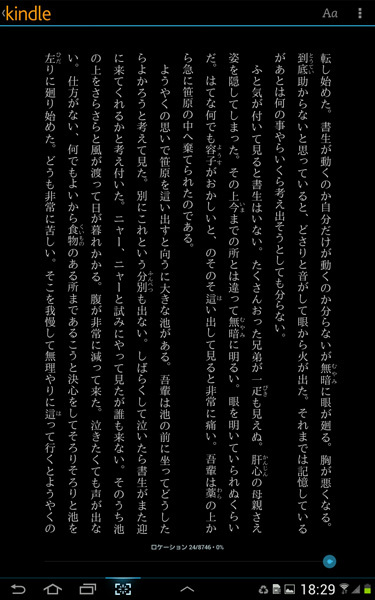 kindle
Aa
転し始めた。書生が動くのか自分だけが動くのか分らないが無暗に眼が廻る。胸が悪くなる。
到底助からないと思っていると、どさりと音がして眼から火が出た。それまでは記憶している
があとは何の事やらいくら考え出そうとしても分らない。
ふと気が付いて見ると書生はいない。たくさんおった兄弟が一疋も見えぬ。肝心の母親さえ
姿を隠してしまった。その上今までの所とは違って無暗に明るい。眼を明いていられぬくらい
だ。はてな何でも容子がおかしいと、のそのそ這い出して見ると非常に痛い。吾輩は藁の上か
ら急に笹原の中へ棄てられたのである。
ようやくの思いで笹原を這い出すと向うに大きな池がある。吾輩は池の前に坐ってどうした
らよかろうと考えて見た。別にこれという分別も出ない。しばらくして泣いたら書生がまた迎
に来てくれるかと考え付いた。ニャー、ニャーと試みにやって見たが誰も来ない。そのうち池
の上をさらさらと風が渡って日が暮れかかる。腹が非常に減って来た。泣きたくても声が出な
い。仕方がない、何でもよいから食物のある所まであるこうと決心をしてそろりそろりと池を
左りに廻り始めた。どうも非常に苦しい。そこを我慢して無理やりに這って行くとようやくの
ロケーション 24/8746・0%
18:29